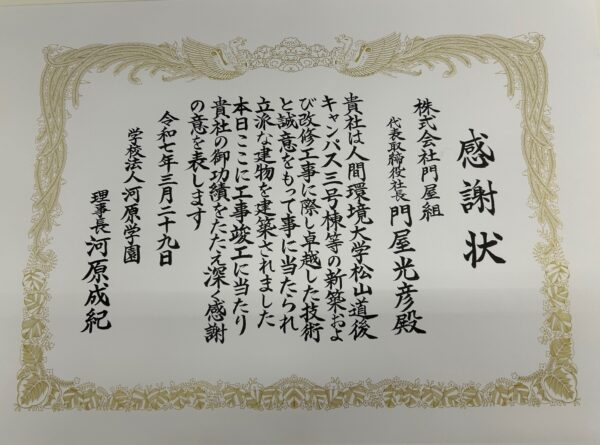 感謝状
株式会社門屋組
代表取締役社長 門屋光彦殿
貴社は人間環境大学松山道後
キャンパス三号棟等の新築およ
び改修工事に際し卓越した技術
と誠意をもって事に当たられ
立派な建物を建築されました
本日ここに工事竣工に当たり
貴社の御功績をたたえ深く感謝
の意を表します
令和七年三月二十九日
学校法人河原学園
理事長 河原成紀